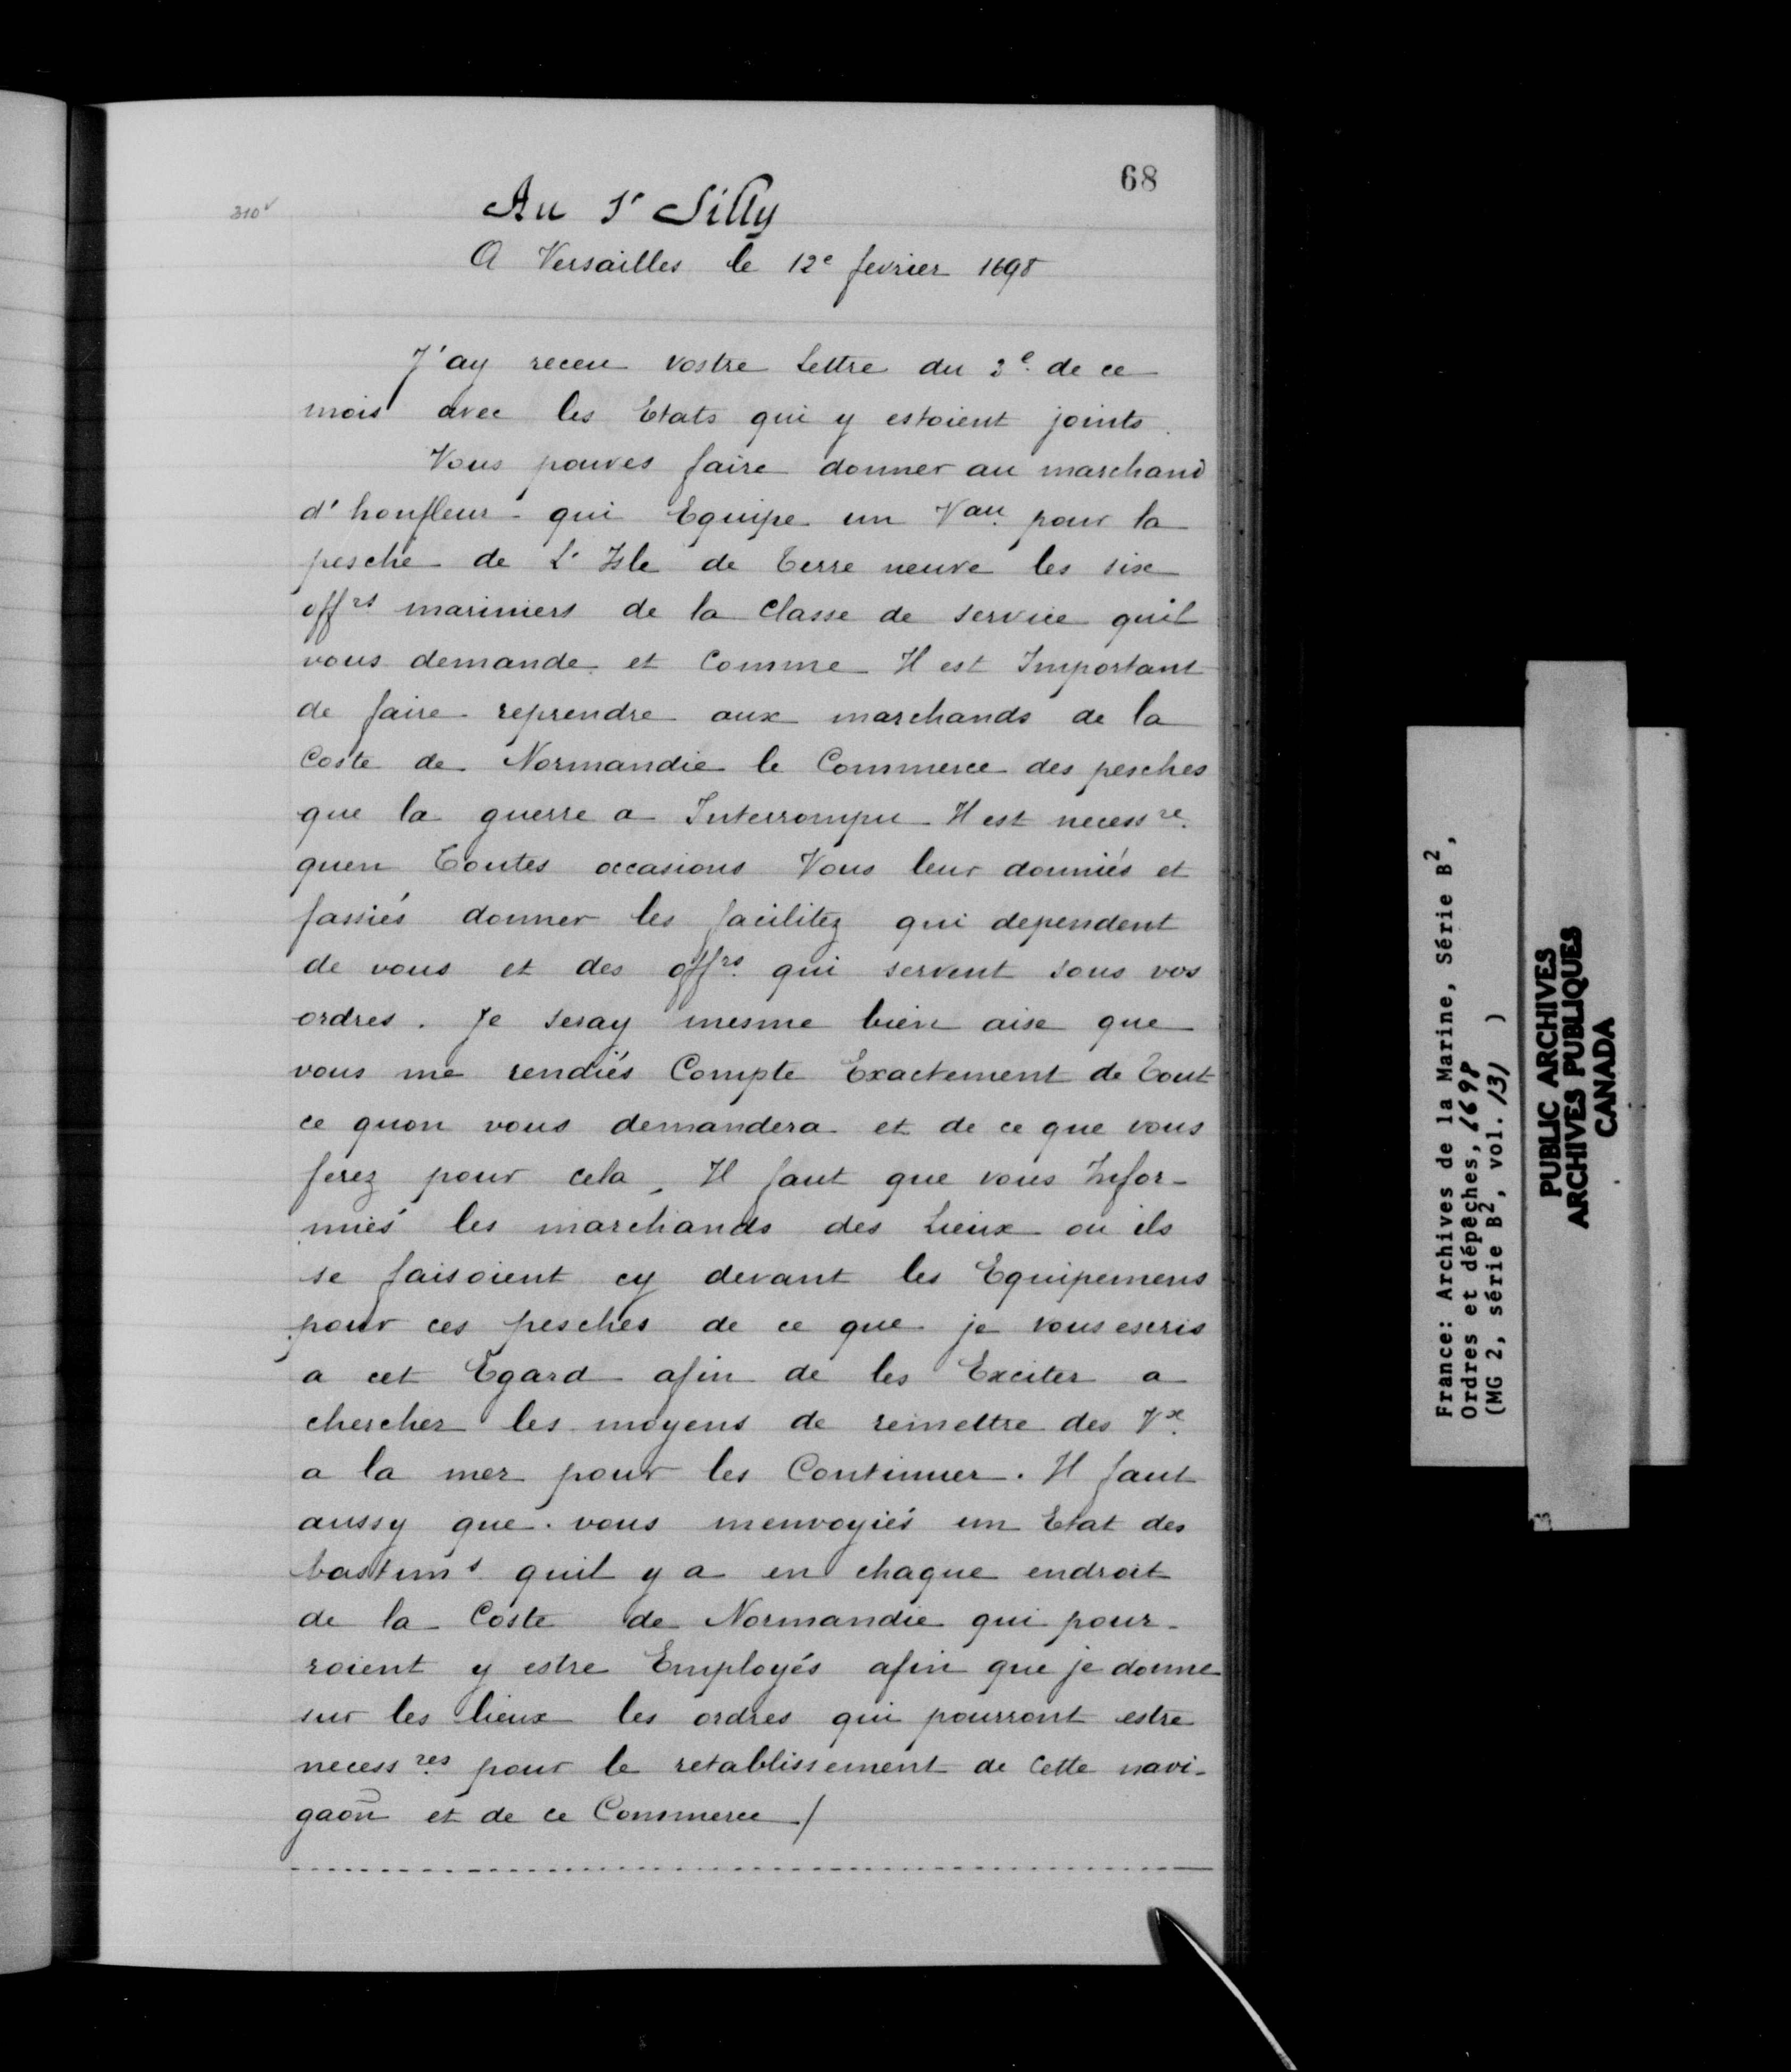 68
310v
Au Sr Silly
A Versailles le 12e fevrier 1698
J'ay receu vostre Lettre du 3e de ce
mois avec les Etats qui y estoient joints.
Vous pouves faire donner au marchand
d'honfleur qui Equipe un Vau pour la
pesche de L'Isle de Terre neuve les six
offrs mariniers de la Classe de service quil
vous demande et Comme Il est Important
de faire reprendre aux marchands de la
Coste de Normandie le Commerce des pesches
que la guerre a Interrompu Il est necessre
quen Toutes occasions Vous leur donniés et
fassiés donner les facilitez qui dependent
de vous et des offrs qui servent sous vos
ordres. Je seray mesme bien aise que
vous me rendiés Compte Exactement de Tout
ce quon vous demandera et de ce que vous
ferez pour cela, Il faut que vous Infor-
miés les marchands des Lieux ou ils
se faisoient cy devant les Equipemens
pour ces pesches de ce que je vous escris
a cet Egard afin de les Exciter a
chercher les moyens de remettre des Vx
a la mer pour les Continuer. Il faut
aussy que vous menvoyiés un Etat des
bastims quil y a en chaque endroit
de la Coste de Normandie qui pour-
roient y estre Employés afin que je donne
sur les lieux les ordres qui pourront estre
necessres pour le retablissement de cette navi-
gaōn et de ce Commerce /
France: Archives de la Marine, Série B2,
Ordres et dépêches, 1698
(MG 2, série B2, vol. 131 )
PUBLIC ARCHIVES
ARCHIVES PUBLIQUES
CANADA